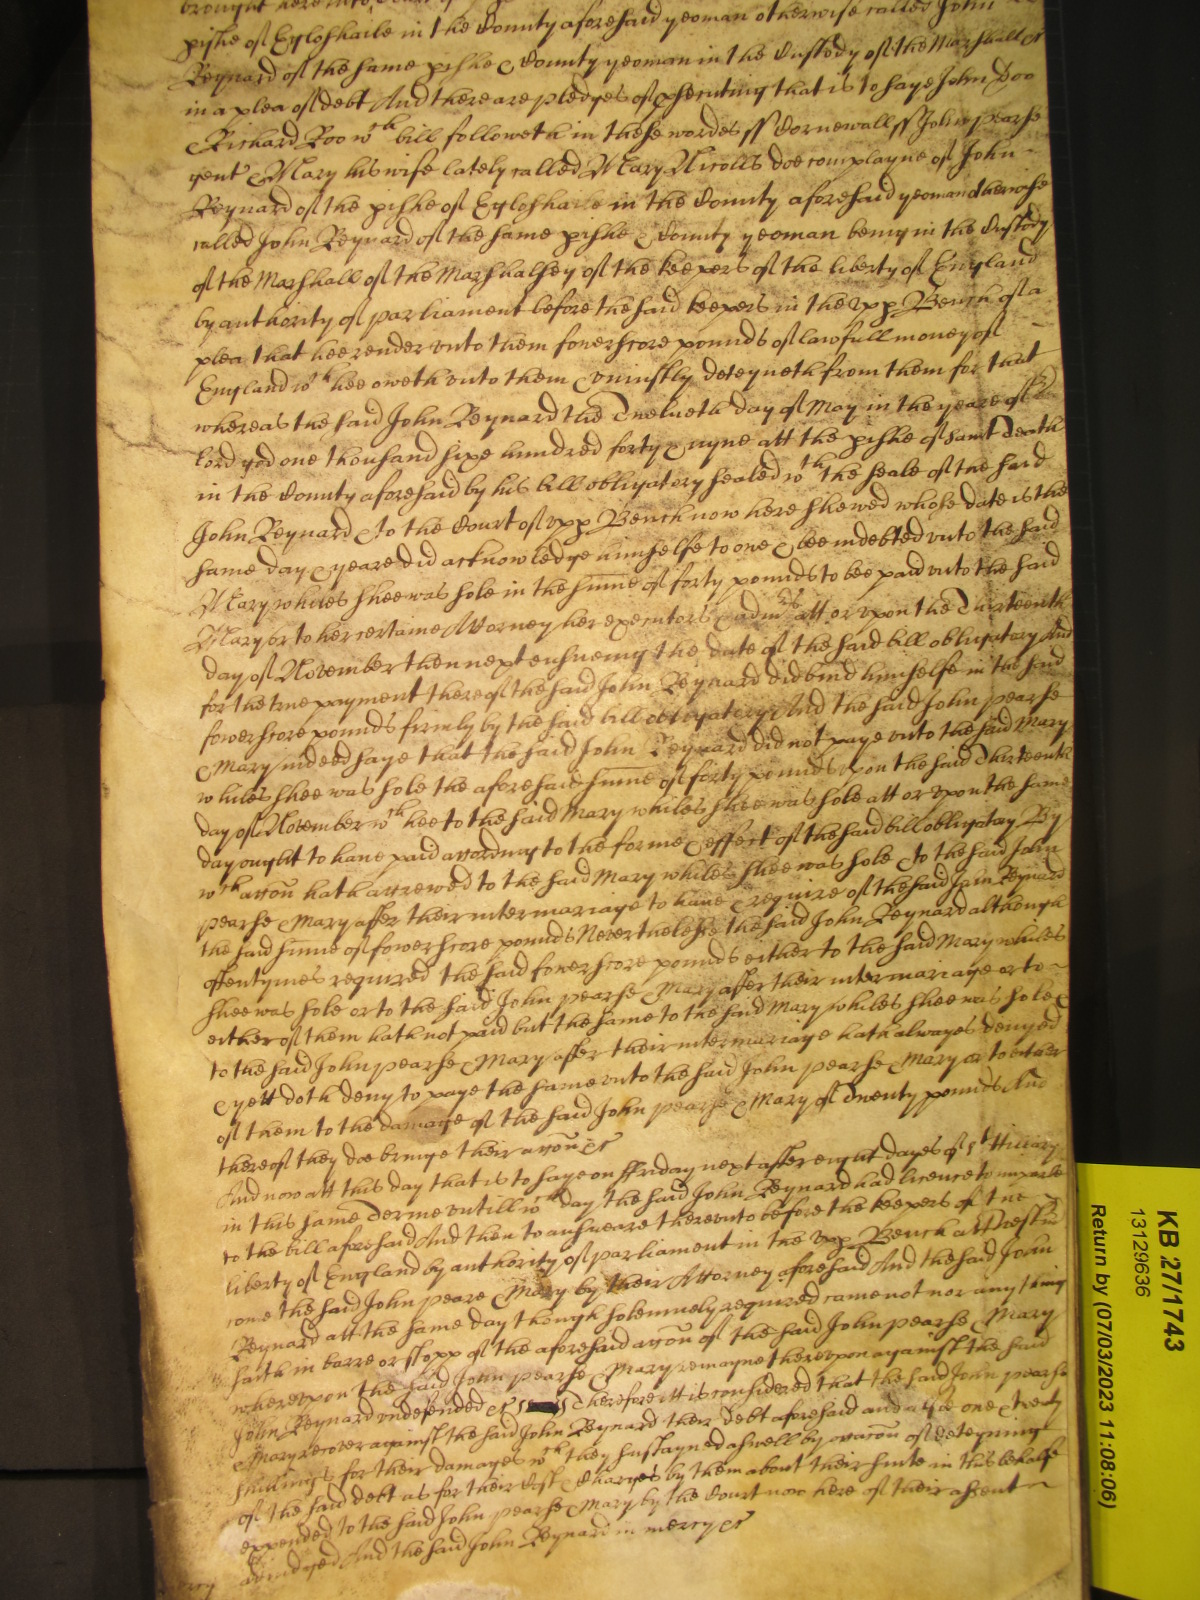 brought here into
pishe of Egloshaile in the County aforesaid yeoman otherwise called John
Reynard of the same pishe & County yeoman in the Custody of the Marshall &c
in a plea of debt And there are pledges of psecuting that is to saye John Doo
& Richard Roo wch bill followeth in these wordes ss Cornewall ss John pearse
gent & Mary his wife lately called Mary Nicolls doe complayne of John
Reynard of the pishe of Egloshaile in the County aforesaid yeoman otherwise
called John Reynard of the same pishe & County yeoman being in the Custody
of the Marshall of the Marshalsey of the keepers of the liberty of England
by authority of parliament before the said keepers in the vpp Bench of a
plea that hee render vnto them fowerscore pounds of lawfull money of
England wch hee oweth vnto them & vniustly deteyneth from them for that
whereas the said John Reynard the Twelveth day of May in the yeare of
lord god one thousand sixe hundred forty & nyne att the pishe of Saint Teath
in the County aforesaid by his bill obligatory sealed wth the seale of the said
John Reynard & to the Court of vpp Bench now here shewed whose date is the
same day & yeare did acknowledge himselfe to owe & bee indebted vnto the said
Mary whiles shee was sole in the sume of forty pounds to bee paid vnto the said
Mary or to her certaine Attorney her executors & admrs att or vpon the Thirteenth
day of November then next ensueing the date of the said bill obligatory And
for the true payment thereof the said John Reynard did bind himselfe in the said
fowerscore pounds firmly by the said bill obligatory And the said John pearse
& Mary indeed saye that the said John Reynard did not paye vnto the said Mary
whiles shee was sole the aforesaid sume of forty pounds vpon the said Thirteenth
day of November wch hee to the said Mary whiles shee was sole att or vpon the same
day ought to haue paid according to the forme & effect of the said bill obligatory By
wch accon hath accrewed to the said Mary whiles shee was sole & to the said John
pearse & Mary after their intermariage to haue & require of the said John Reynard
the said sume of fowerscore pounds Neverthelesse the said John Reynard although
oftentymes required the said fowerscore pounds either to the said Mary whiles
shee was sole or to the said John pearse & Mary after their intermariage or to
either of them hath not paid but the same to the said Mary whiles shee was sole &
to the said John pearse & Mary after their intermariage hath alwayes denyed
& yett doth deny to paye the same vnto the said John pearse & Mary or to either
of them to the damage of the said John pearse & Mary of Twenty pounds And
thereof they doe bringe their accon &c
And now att this day that is to saye on ffriday next after eight dayes of st Hillary
in this same Terme vntill wch day the said John Reynard had licence to imparle
to the bill aforesaid And then to answeare therevnto before the keepers of the
liberty of England by authority of parliament in the vpp Bench att Westmr
come the said John pearse & Mary by their Attorney aforesaid And the said John
Reynard att the same day though solemnely required came not nor any thing
saith in barre or stopp of the aforesaid accon of the said John pearse & Mary
wherevpon the said John pearse & Mary remayne therevpon against the said
John Reynard vndefended &c Therefore itt is considered that the said John pearse
& Mary recover against the said John Reynard their debt aforesaid and
shillings for their damages wch they sustayned aswell by occacon of deteyning
of the said debt as for their Cost & Charges by them about their suite in this behalfe
expended to the said John pearse & Mary by the Court now here of their assent
adiudged And the said John Reynard in mercy &c
KB 27/1743
13129636
Return by (07/03/2023 11:08:06)